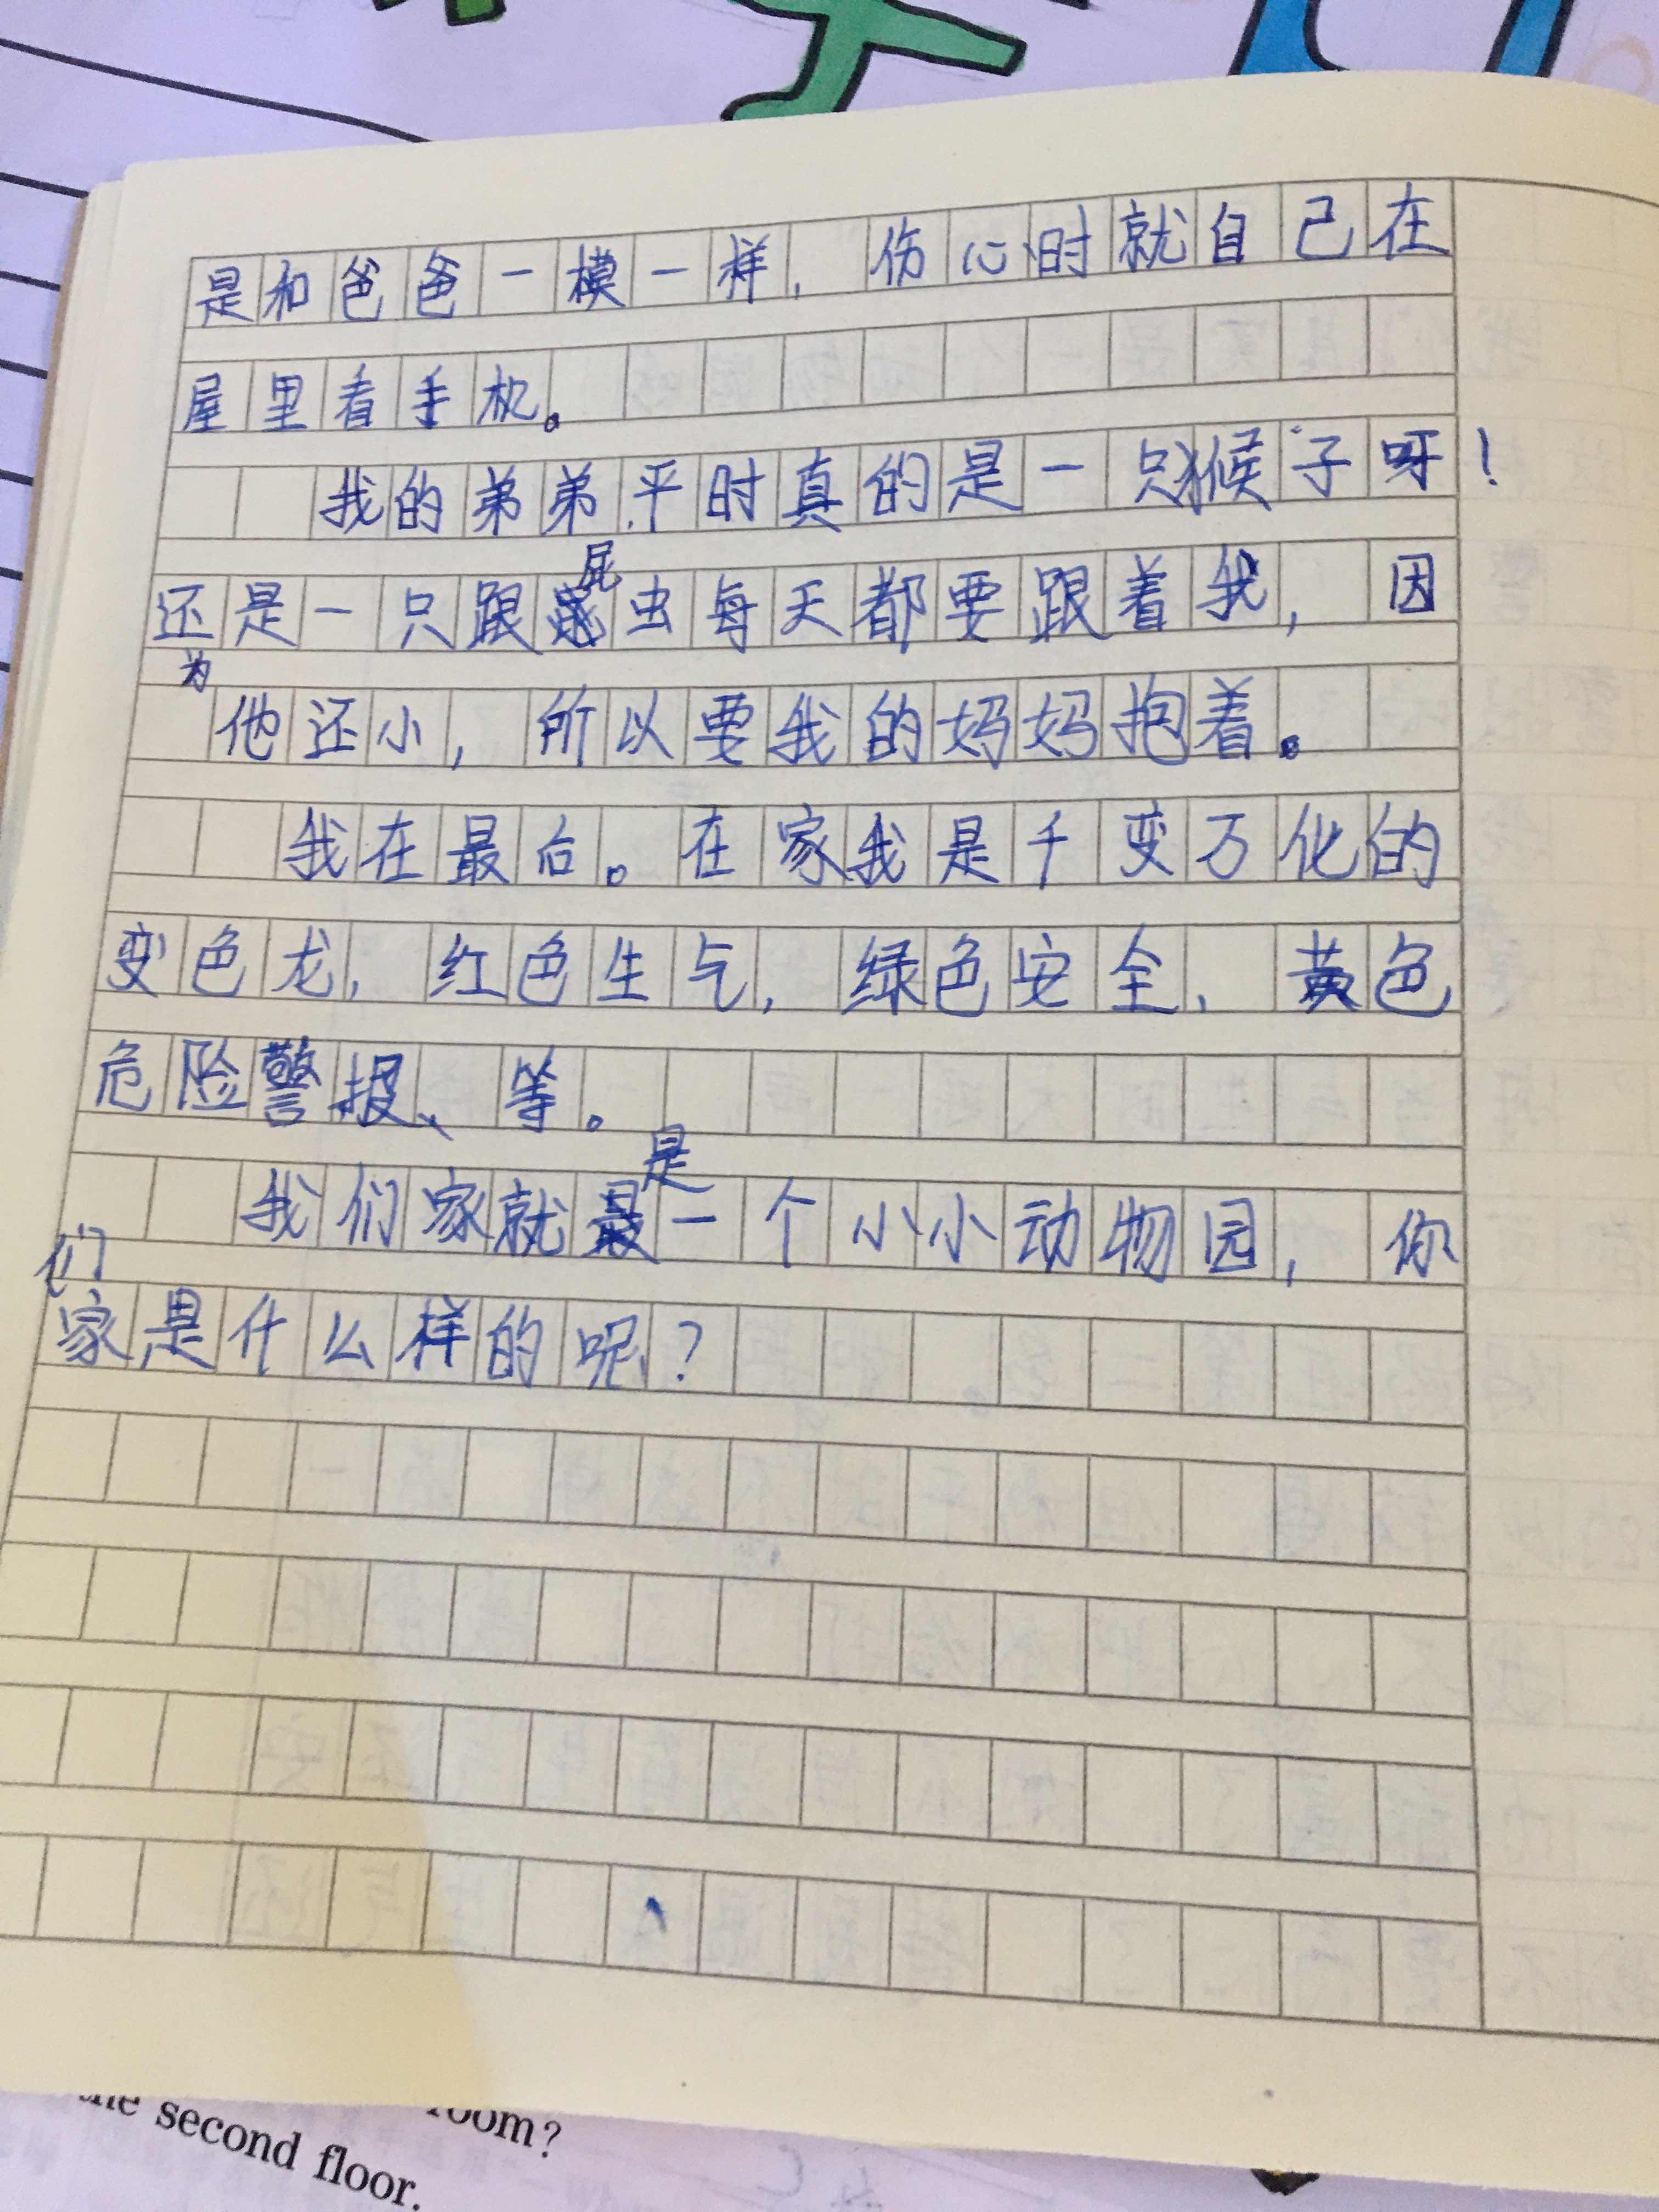 是和爸爸一模一样，伤心时就自己在
屋里看手机。
我的弟弟平时真的是一只猴子呀！
还是一只跟屁虫每天都要跟着我，因
为他还小，所以要我的妈妈抱着。
我在最后。在家我是千变万化的
变色龙，红色生气，绿色安全、黄色
危险警报、等。
我们家就是一个小小动物园，你
们家是什么样的呢？
room?
the second floor.